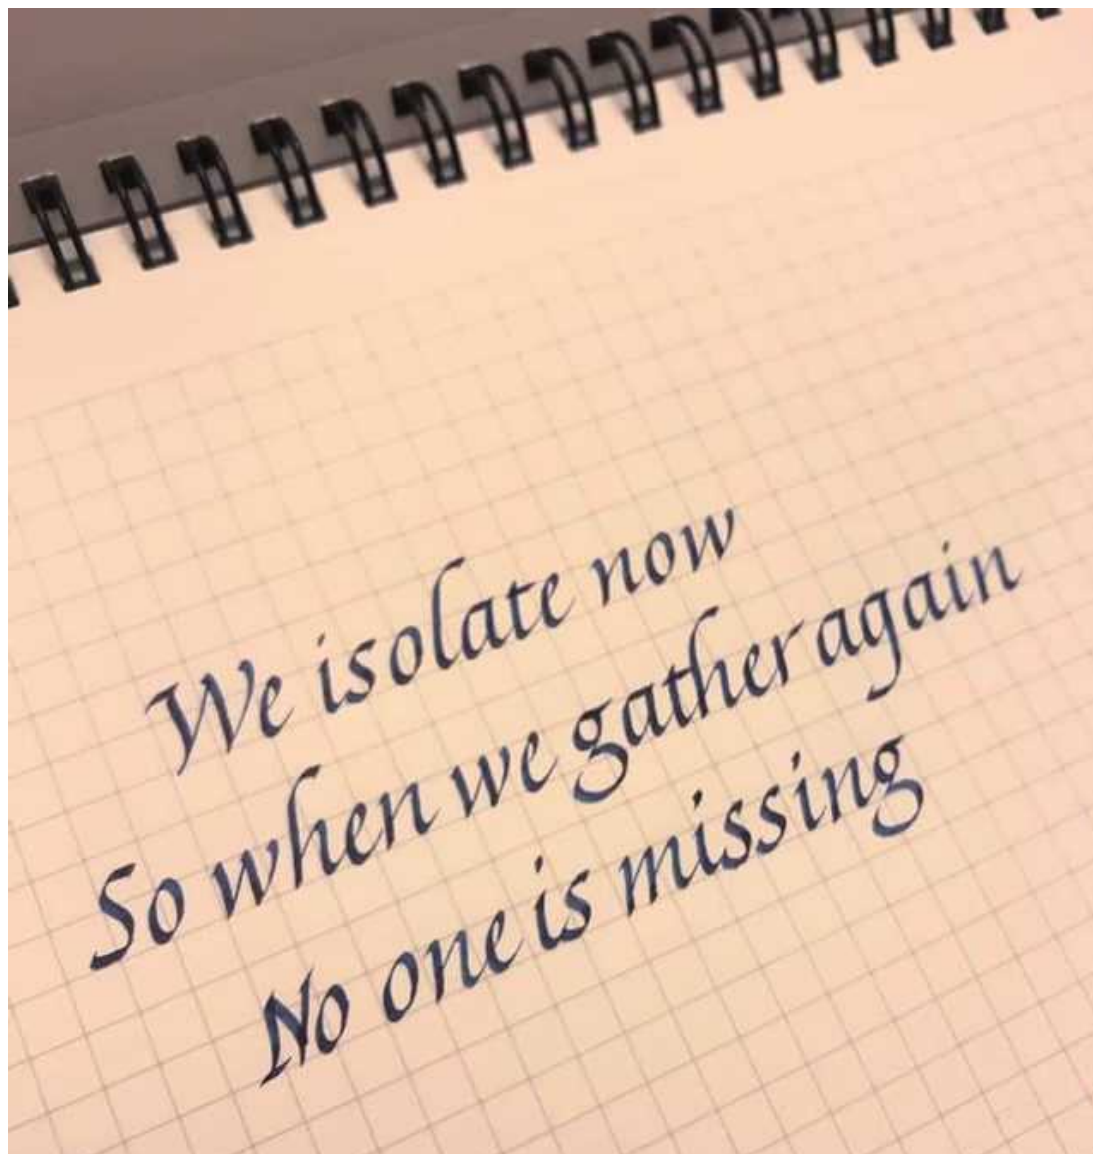 We isolate now
So when we gather again
No one is missing